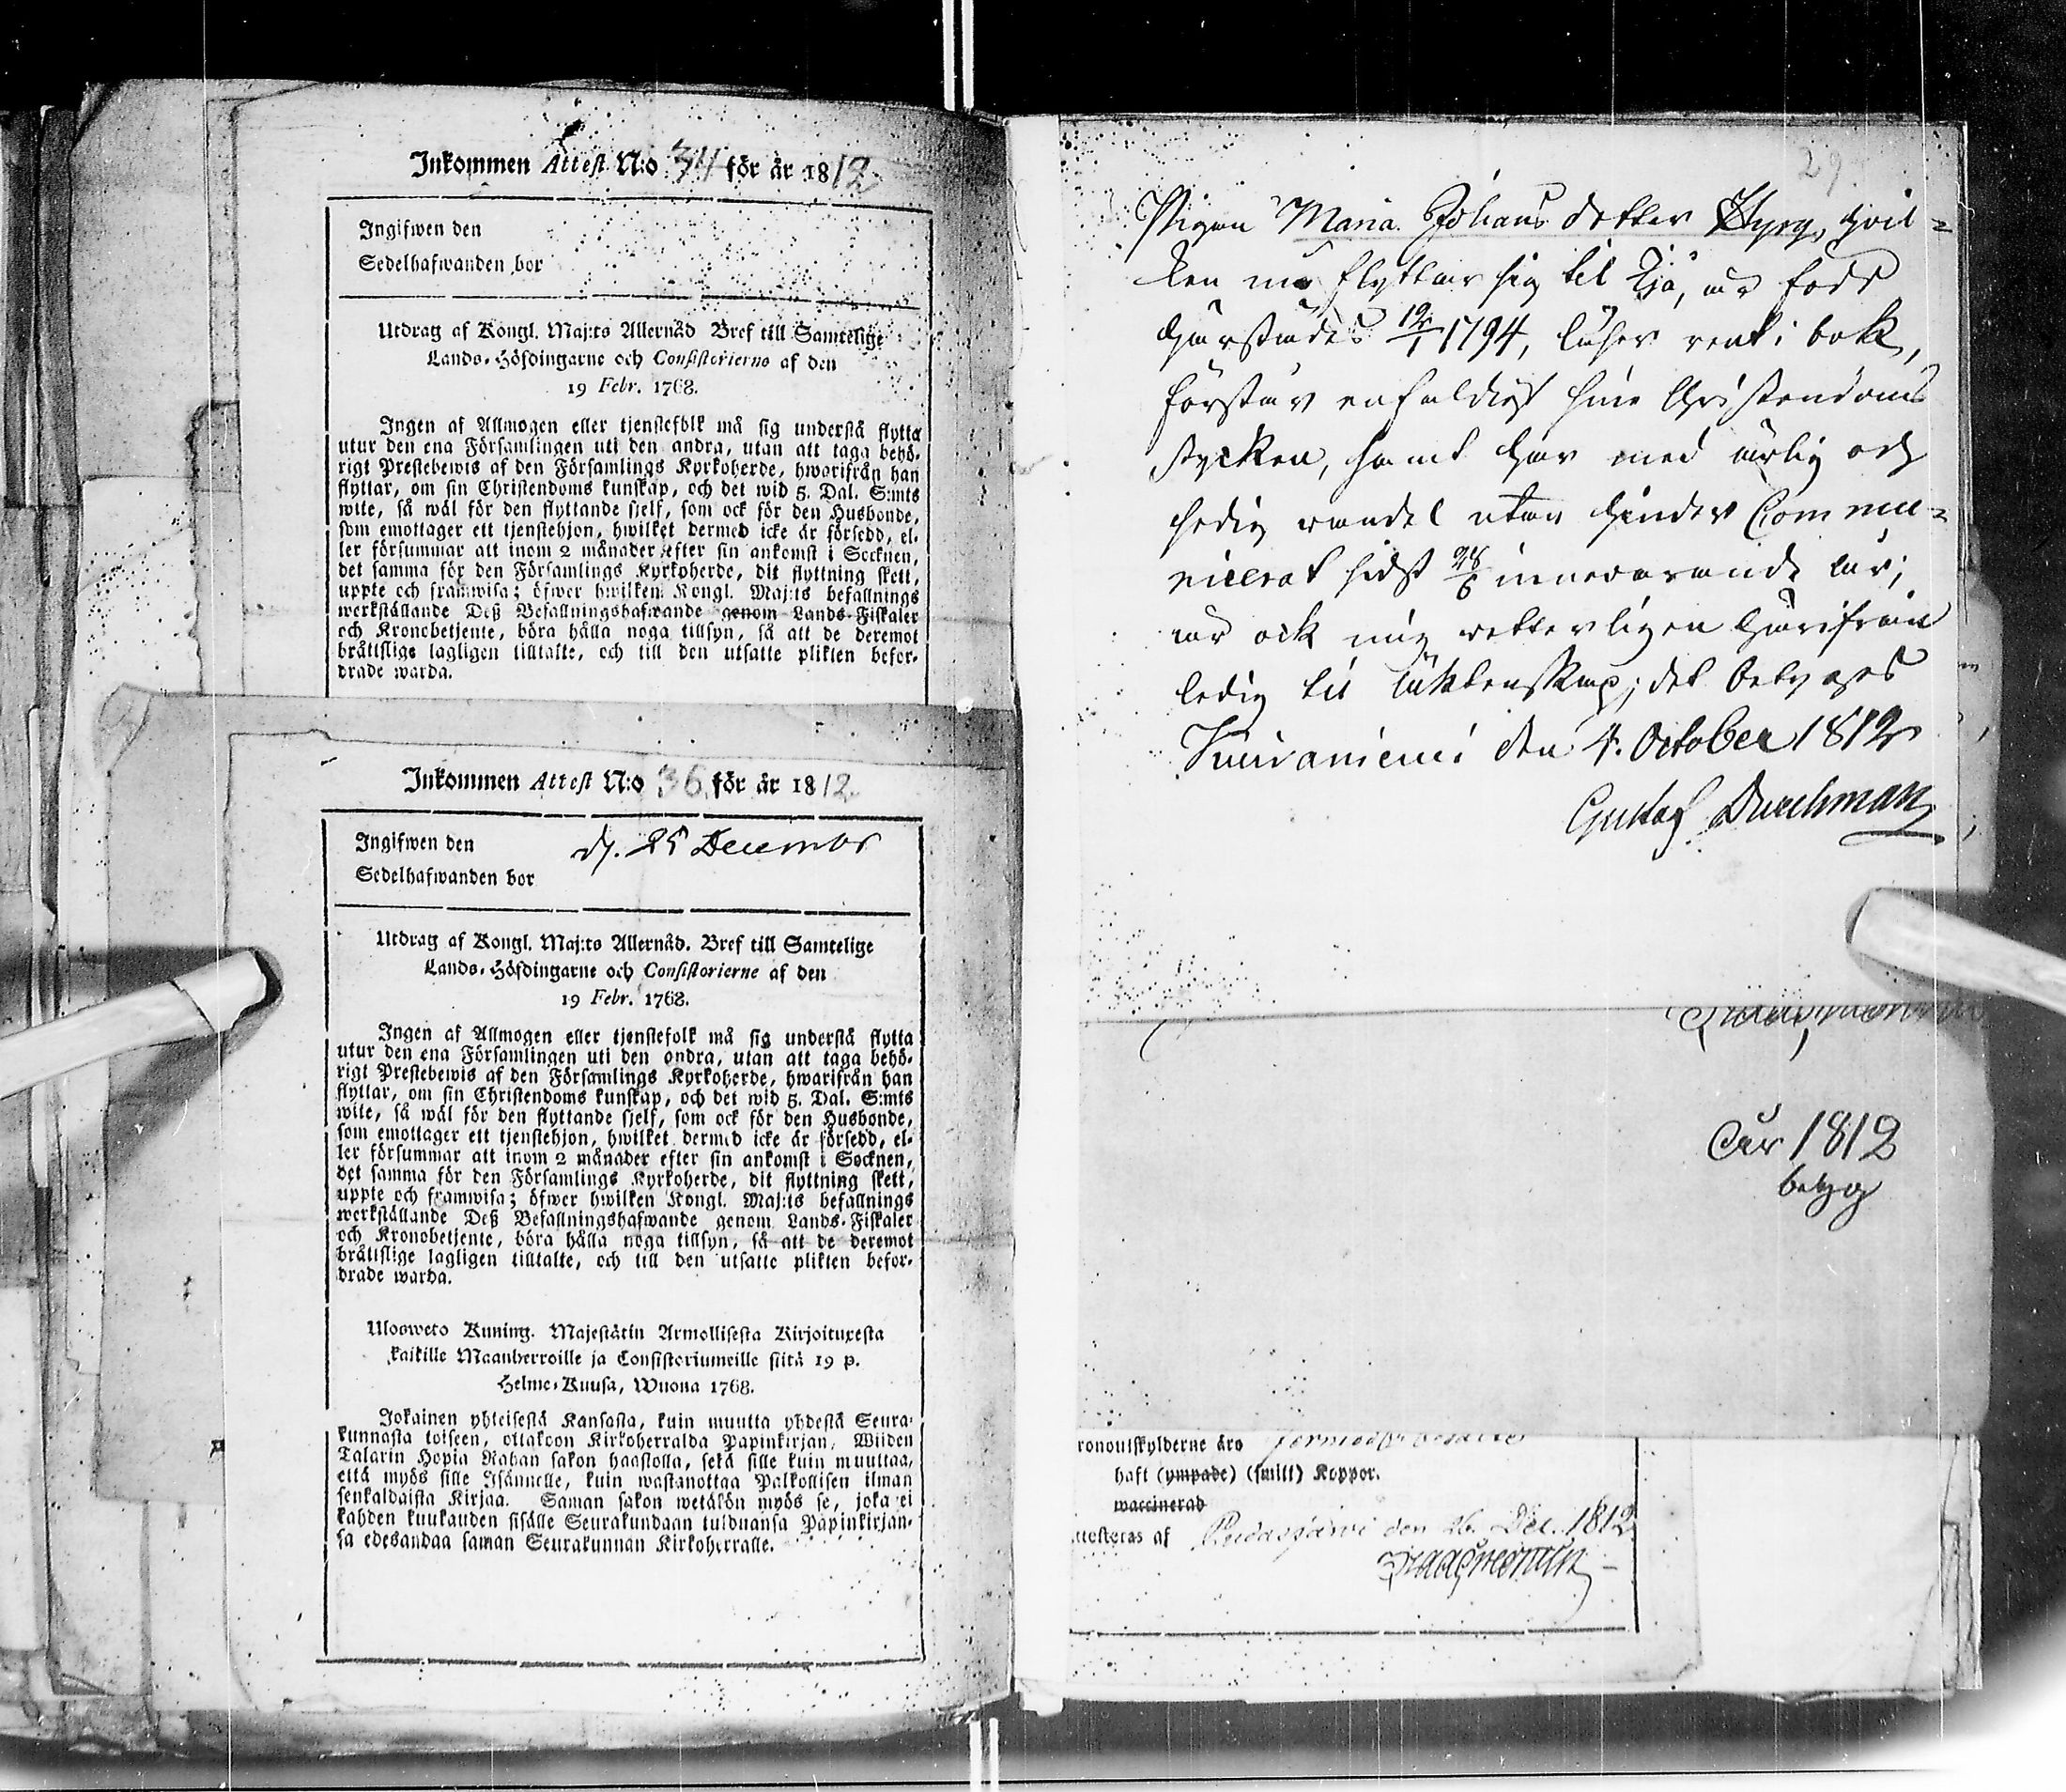 Inkommen Attest N:o 34 för år 1812
Ingifwen den
Sedelhafwanden bor
Utdrag af Kongl. Maj:ts Allernåd Bref till Samtelige
Lands-Höfdingarne och Consistorierne af den
19 Febr. 1768.
Ingen af Allmogen eller tjenstefolk må sig understå flytta
utur den ena Församlingen uti den andra, utan att taga behö-
rigt Prestebewis af den Församlings Kyrkoherde, hwarifrån han
flyttar, om sin Christendoms kunskap, och det wid 5. Dal. S:mts
wite, så wäl för den flyttande sjelf, som ock för den Husbonde,
som emottager ett tjenstehjon, hwilket dermed icke är försedd, el-
ler försummar att inom 2 månader efter sin ankomst i Socknen,
det samma för den Församlings Kyrkoherde, dit flyttning skett,
uppte och framwisa; öfwer hwilken Kongl. Maj:ts befallnings
werkställande Deß Befallningshafwande genom Lands-Fiskaler
och Kronobetjente, böra hålla noga tillsyn, så att de deremot
bråttslige lagligen tilltalte, och till den utsatte plikten befor-
drade warda.
Inkommen Attest N:o 36 för år 1812
Ingifwen den d. 25 December
Sedelhafwanden bor
Utdrag af Kongl. Maj:ts Allernåd. Bref till Samtelige
Lands-Höfdingarne och Consistorierne af den
19 Febr. 1768.
Ingen af Allmogen eller tjenstefolk må sig understå flytta
utur den ena Församlingen uti den andra, utan att taga behö-
rigt Prestebewis af den Församlings Kyrkoherde, hwarifrån han
flyttar, om sin Christendoms kunskap, och det wid 5. Dal. S:mts
wite, så wäl för den flyttande sjelf, som ock för den Husbonde,
som emottager ett tjenstehjon, hwilket dermed icke är försedd, el-
ler försummar att inom 2 månader efter sin ankomst i Socknen,
det samma för den Församlings Kyrkoherde, dit flyttning skett,
uppte och framwisa; öfwer hwilken Kongl. Maj:ts befallnings
werkställande Deß Befallningshafwande genom Lands-Fiskaler
och Kronobetjente, böra hålla noga tillsyn, så att de deremot
bråttslige lagligen tilltalte, och till den utsatte plikten befor-
drade warda.
Ulosweto Kuning. Majestätin Armollisesta Kirjoituxesta
kaikille Maanherroille ja Consistoriumeille siitä 19 p.
Helme-Kuusa, Wuona 1768.
Jokainen yhteisestä Kansasta, kuin muutta yhdestä Seura-
kunnasta toiseen, ottakoon Kirkoherralda Papinkirjan, Wiiden
Talarin Hopia Rahan sakon haastolla, sekä sille kuin muuttaa,
että myös sille Isännelle, kuin wastanottaa Palkollisen ilman
senkaldaista Kirjaa. Saman sakon wetäkön myös se, joka ei
kahden kuukauden sisälle Seurakundaan tulduansa Papinkirjan-
sa edesandaa saman Seurakunnan Kirkoherralle.
29.
Pigan Maria Johans dotter Hyry, hvil-
ken nu flyttar sig til Ijo, är född
härstädes 12/1 1794, läser rent i bok,
förstår enfaldigt sine Christendoms
stycken, samt har med ärlig och
sedig wandel utan hinder Commu-
nicerat sidst 28/6 innevarande år;
är ock mig vetterligen härifrån
ledig til äktenskap; det betygas
Kuivaniemi den 4. October 1812
Gustaf Durchman
År 1812
betyg
ronoutskylderne äro
haft (ympade) (smitt) Koppor.
waccinerad
ttesteras af Pudasjärvi den 26. Dec. 1812